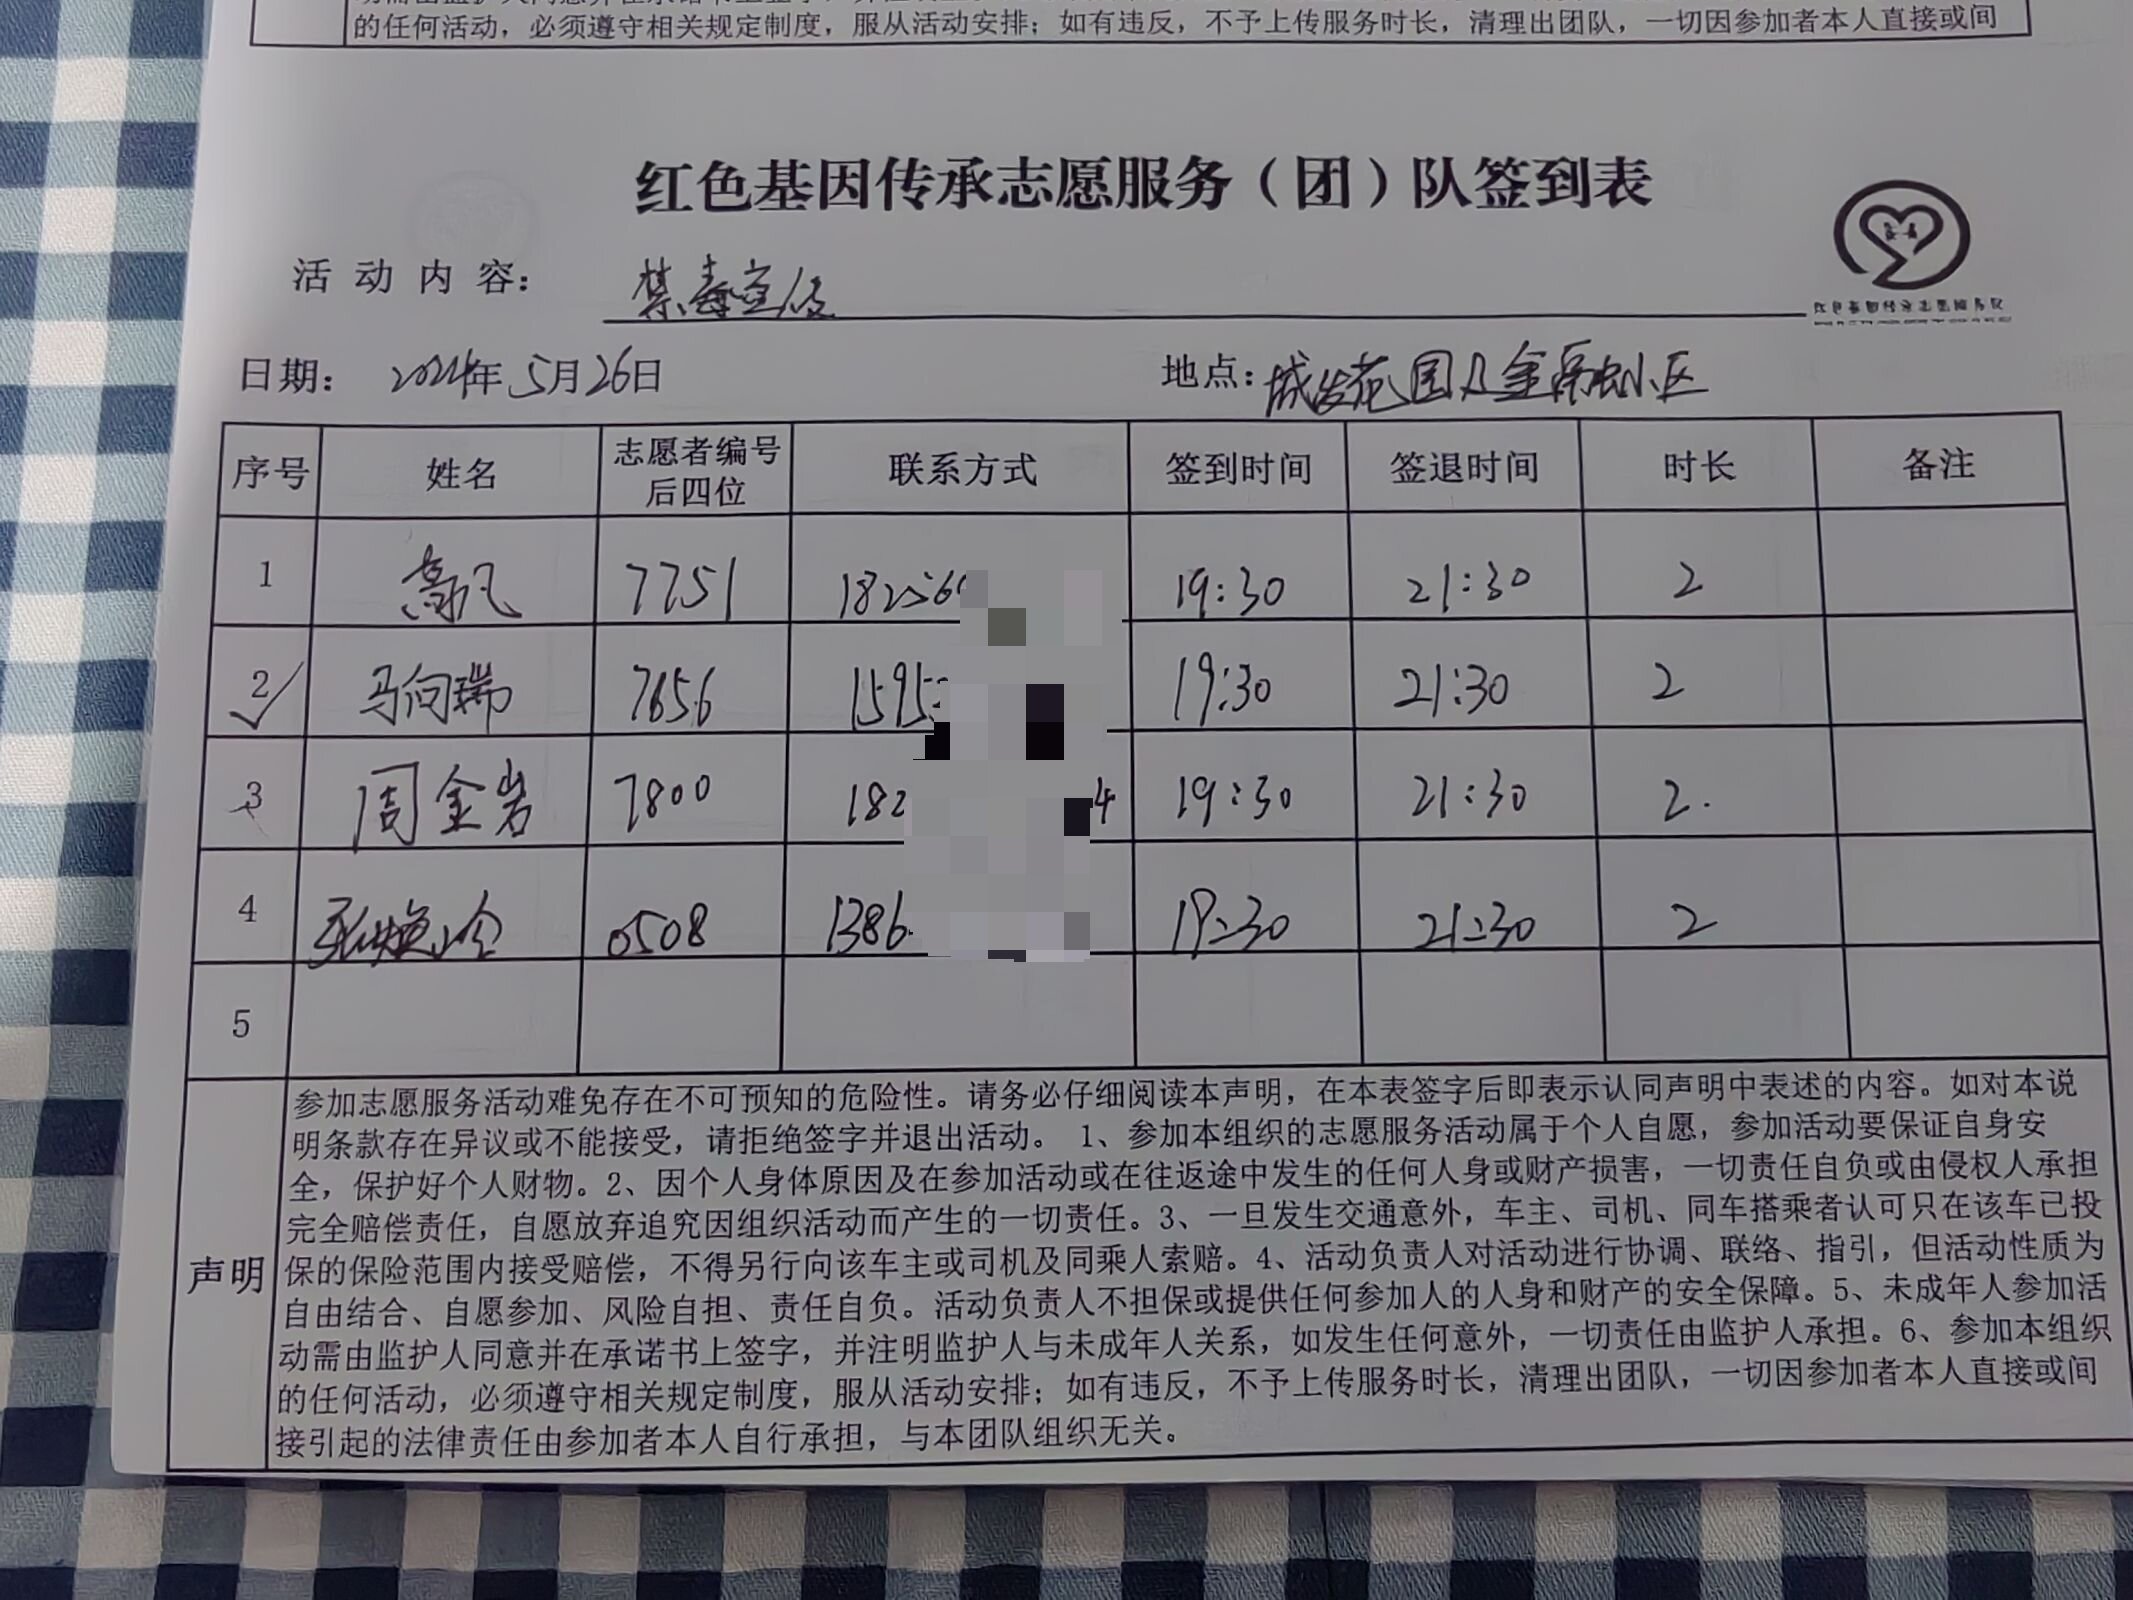 的任何活动，必须遵守相关规定制度，服从活动安排；如有违反，不予上传服务时长，清理出团队，一切因参加者本人直接或间
红色基因传承志愿服务（团）队签到表
活动内容： 禁毒宣传
日期： 2024年5月26日 地点：城发花园及金 小区
序号 姓名 志愿者编号后四位 联系方式 签到时间 签退时间 时长 备注
1 高飞 7751 182566 19:30 21:30 2
2 马向瑞 7656 1595 19:30 21:30 2
3 周金岩 7800 182 4 19:30 21:30 2.
4 张焕冷 0508 1386 19:30 21:30 2
5
声明
参加志愿服务活动难免存在不可预知的危险性。请务必仔细阅读本声明，在本表签字后即表示认同声明中表述的内容。如对本说
明条款存在异议或不能接受，请拒绝签字并退出活动。 1、参加本组织的志愿服务活动属于个人自愿，参加活动要保证自身安
全，保护好个人财物。2、因个人身体原因及在参加活动或在往返途中发生的任何人身或财产损害，一切责任自负或由侵权人承担
完全赔偿责任，自愿放弃追究因组织活动而产生的一切责任。3、一旦发生交通意外，车主、司机、同车搭乘者认可只在该车已投
保的保险范围内接受赔偿，不得另行向该车主或司机及同乘人索赔。4、活动负责人对活动进行协调、联络、指引，但活动性质为
自由结合、自愿参加、风险自担、责任自负。活动负责人不担保或提供任何参加人的人身和财产的安全保障。5、未成年人参加活
动需由监护人同意并在承诺书上签字，并注明监护人与未成年人关系，如发生任何意外，一切责任由监护人承担。6、参加本组织
的任何活动，必须遵守相关规定制度，服从活动安排；如有违反，不予上传服务时长，清理出团队，一切因参加者本人直接或间
接引起的法律责任由参加者本人自行承担，与本团队组织无关。